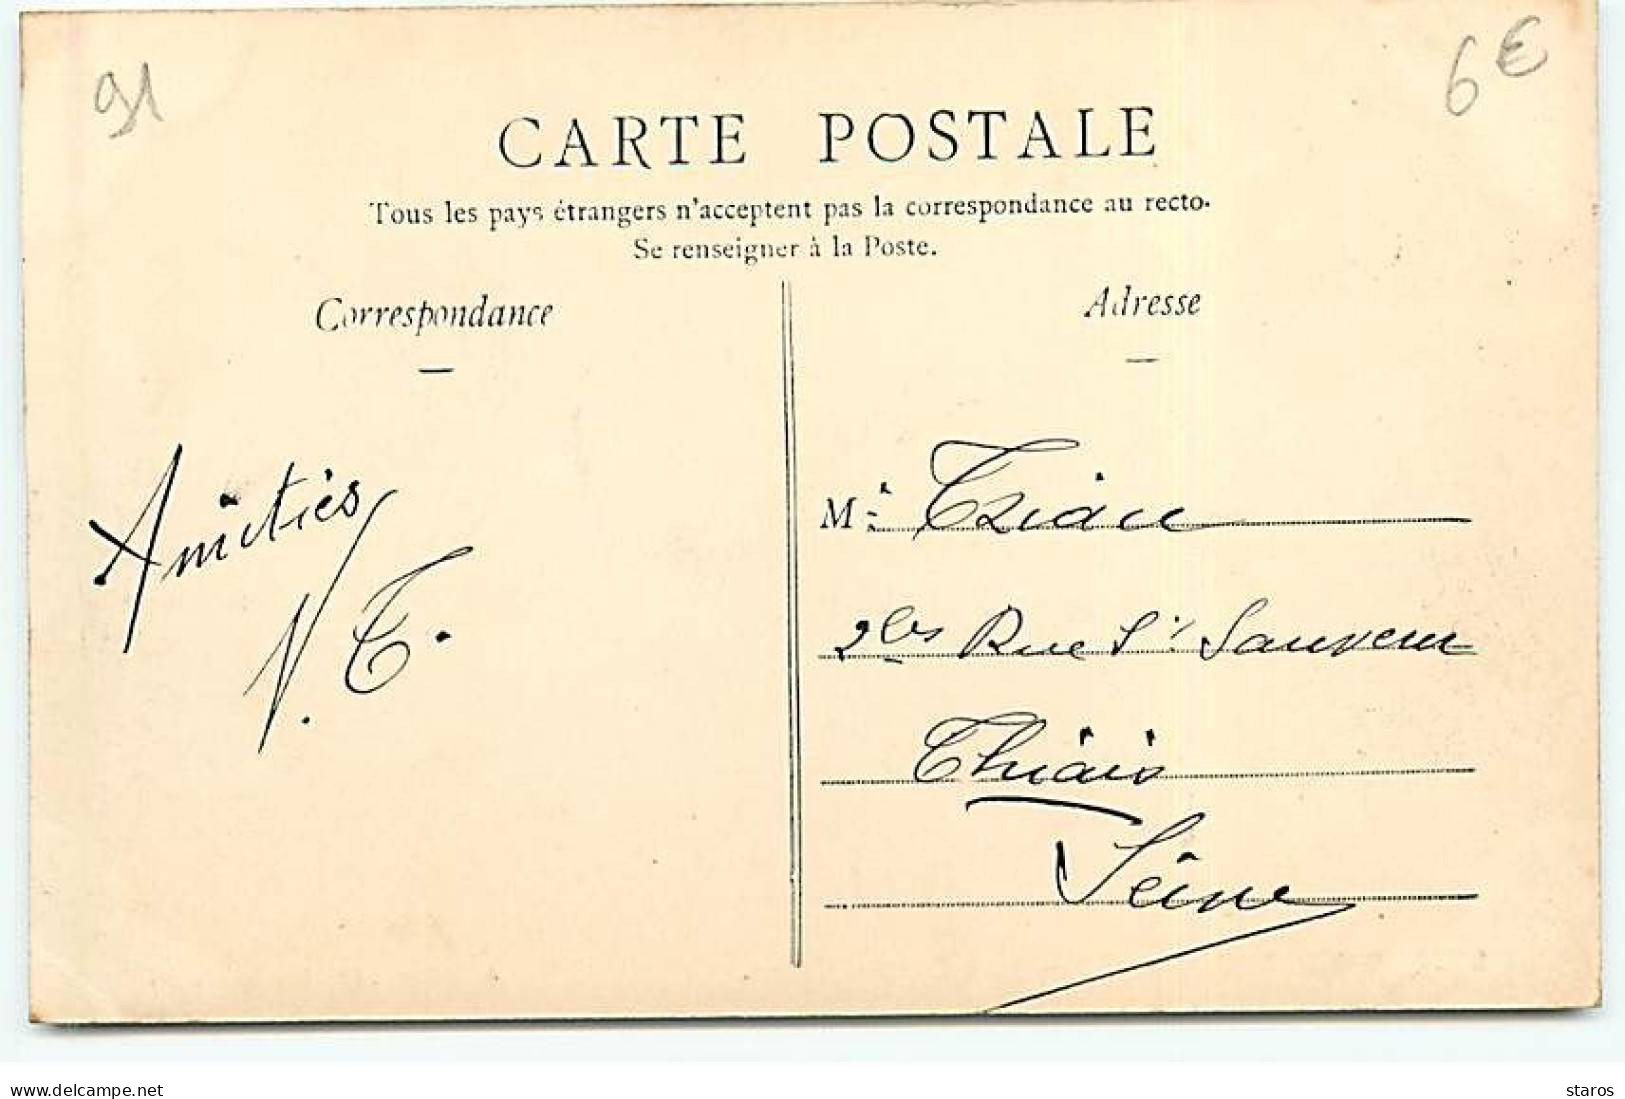 91
6€
CARTE POSTALE
Tous les pays étrangers n'acceptent pas la correspondance au recto.
Se renseigner à la Poste.
Correspondance
Adresse
Amitiés
V. T.
M.
2bis Rue St Sauveur
Thiais
Seine
www.delcampe.net
staros